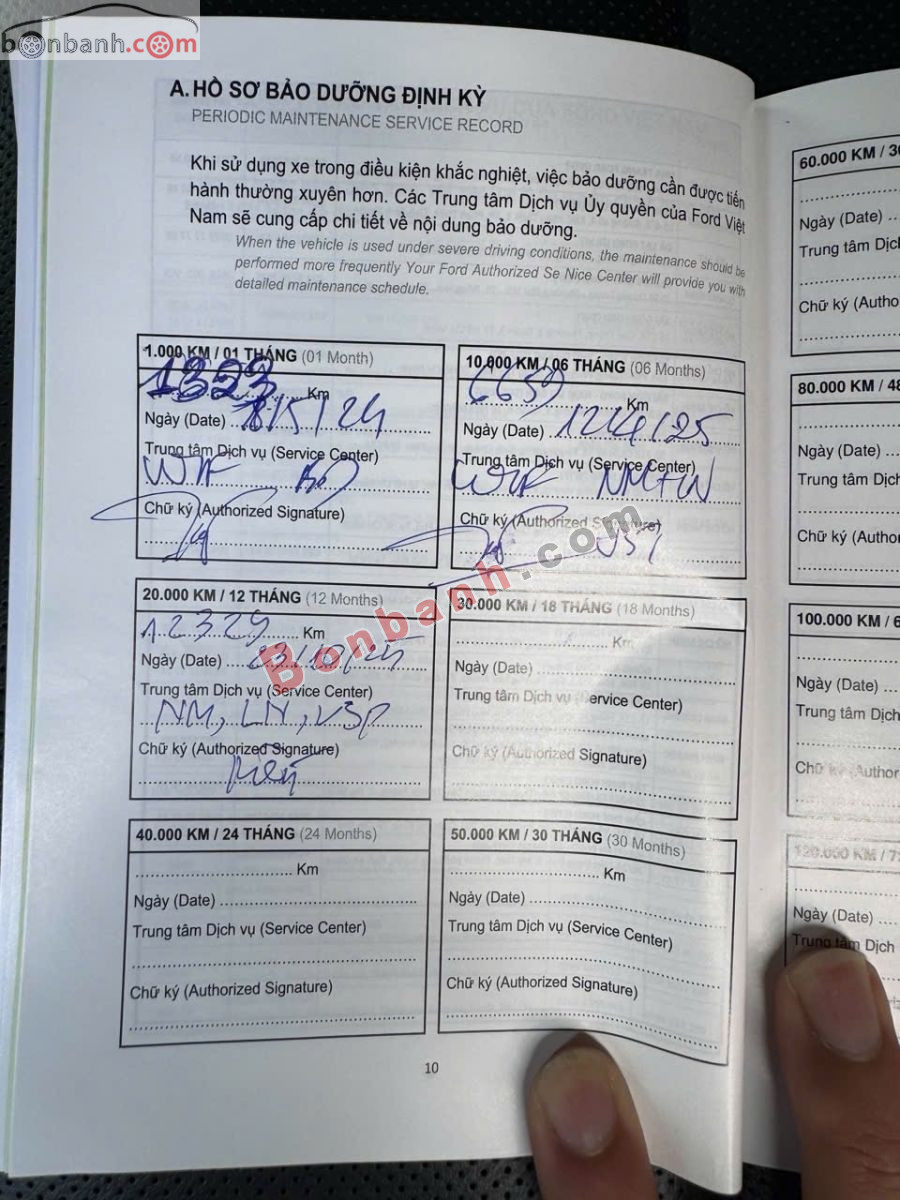 bonbanh.com
A. HỒ SƠ BẢO DƯỠNG ĐỊNH KỲ
PERIODIC MAINTENANCE SERVICE RECORD
Khi sử dụng xe trong điều kiện khắc nghiệt, việc bảo dưỡng cần được tiến
hành thường xuyên hơn. Các Trung tâm Dịch vụ Ủy quyền của Ford Việt
Nam sẽ cung cấp chi tiết về nội dung bảo dưỡng.
When the vehicle is used under severe driving conditions, the maintenance should be
performed more frequently Your Ford Authorized Se Nice Center will provide you with
detailed maintenance schedule.
1.000 KM / 01 THÁNG (01 Month)
1323 Km
Ngày (Date)
Trung tâm Dịch vụ (Service Center)
Chữ ký (Authorized Signature)
10.000 KM / 06 THÁNG (06 Months)
6659 Km
Ngày (Date)
Trung tâm Dịch vụ (Service Center)
Chữ ký (Authorized Signature)
20.000 KM / 12 THÁNG (12 Months)
12329 Km
Ngày (Date)
Trung tâm Dịch vụ (Service Center)
NM, LN, VSP
Chữ ký (Authorized Signature)
30.000 KM / 18 THÁNG (18 Months)
Km
Ngày (Date)
Trung tâm Dịch vụ (Service Center)
Chữ ký (Authorized Signature)
40.000 KM / 24 THÁNG (24 Months)
Km
Ngày (Date)
Trung tâm Dịch vụ (Service Center)
Chữ ký (Authorized Signature)
50.000 KM / 30 THÁNG (30 Months)
Km
Ngày (Date)
Trung tâm Dịch vụ (Service Center)
Chữ ký (Authorized Signature)
10
60.000 KM / 3
Ngày (Date)
Trung tâm Dịc
Chữ ký (Autho
80.000 KM / 48
Ngày (Date)
Trung tâm Dịch
Chữ ký (Autho
100.000 KM / 6
Ngày (Date)
Trung tâm Dịch
Chữ ký (Author
120.000 KM / 7
Ngày (Date)
Trung tâm Dịch
Bonbanh.com